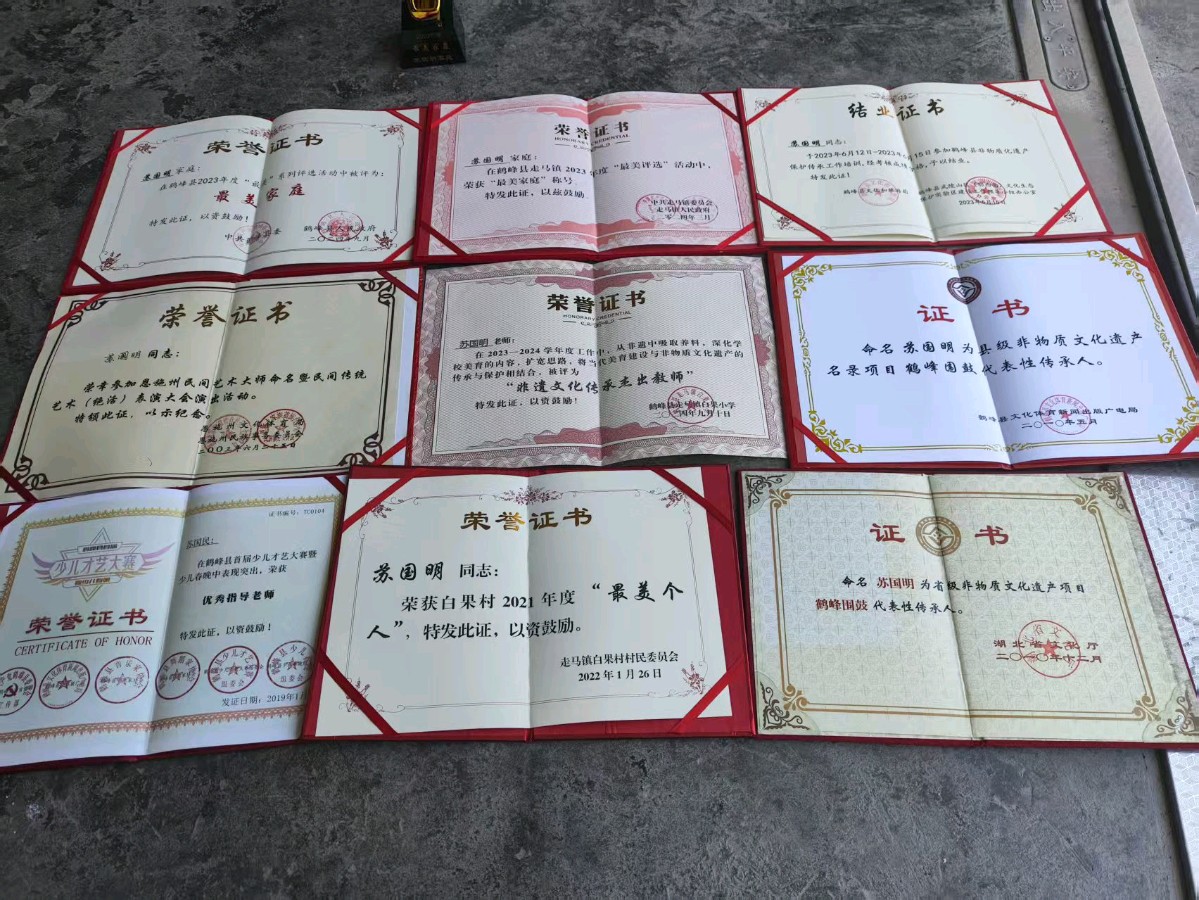 荣誉证书
苏国明 家庭:
在鹤峰县2023年度"
"系列评选活动中被评为:
最美
家庭
特发此证,以资鼓励!
中共
县委
鹤峰县人民政府
荣誉证书
HONORARY CREDENTIAL
苏国明 家庭:
在鹤峰县走马镇2023年度"最美评选"活动中,
荣获"最美家庭"称号。
特发此证,以兹鼓励
中共走马镇委员会
走马镇人民政府
二〇二四年二月
结业证书
苏国明 同志:
于2023年6月12日-2023年6月15日参加鹤峰县非物质文化遗产
保护传承工作培训,经考核成绩
,予以结业。
特发此证!
荣誉证书
苏国明 同志:
荣幸参加恩施州民间艺术大师命名暨民间传统
艺术(绝活)表演大会演出活动。
特颁此证,以示纪念。
荣誉证书
HONORARY CREDENTIAL
苏国明 老师:
在2023—2024学年度工作中,从非遗中吸取养料,深化学
校美育的内容,扩宽思路,将当代美育建设与非物质文化遗产的
传承与保护相结合,被评为
"非遗文化传承杰出教师"
特发此证,以资鼓励!
鹤峰县走马镇白果小学
二〇二四年九月十日
证书
命名 苏国明 为 县 级非物质文化遗产
名录项目 鹤峰围鼓 代表性传承人。
鹤峰县文化体育新闻出版广电局
二〇一〇年五月
证书编号:TC0103
少儿才艺大赛
荣誉证书
CERTIFICATE OF HONOR
苏国民:
在鹤峰县首届少儿才艺大赛暨
少儿春晚中表现突出,荣获
优秀指导老师
特发此证,以资鼓励!
发证日期:2019年1月
荣誉证书
苏国明 同志:
荣获白果村2021年度"最美个
人",特发此证,以资鼓励。
走马镇白果村村民委员会
2022年1月26日
证书
命名 苏国明 为省级非物质文化遗产项目
鹤峰围鼓 代表性传承人。
湖北省文化厅
二〇一〇年十二月